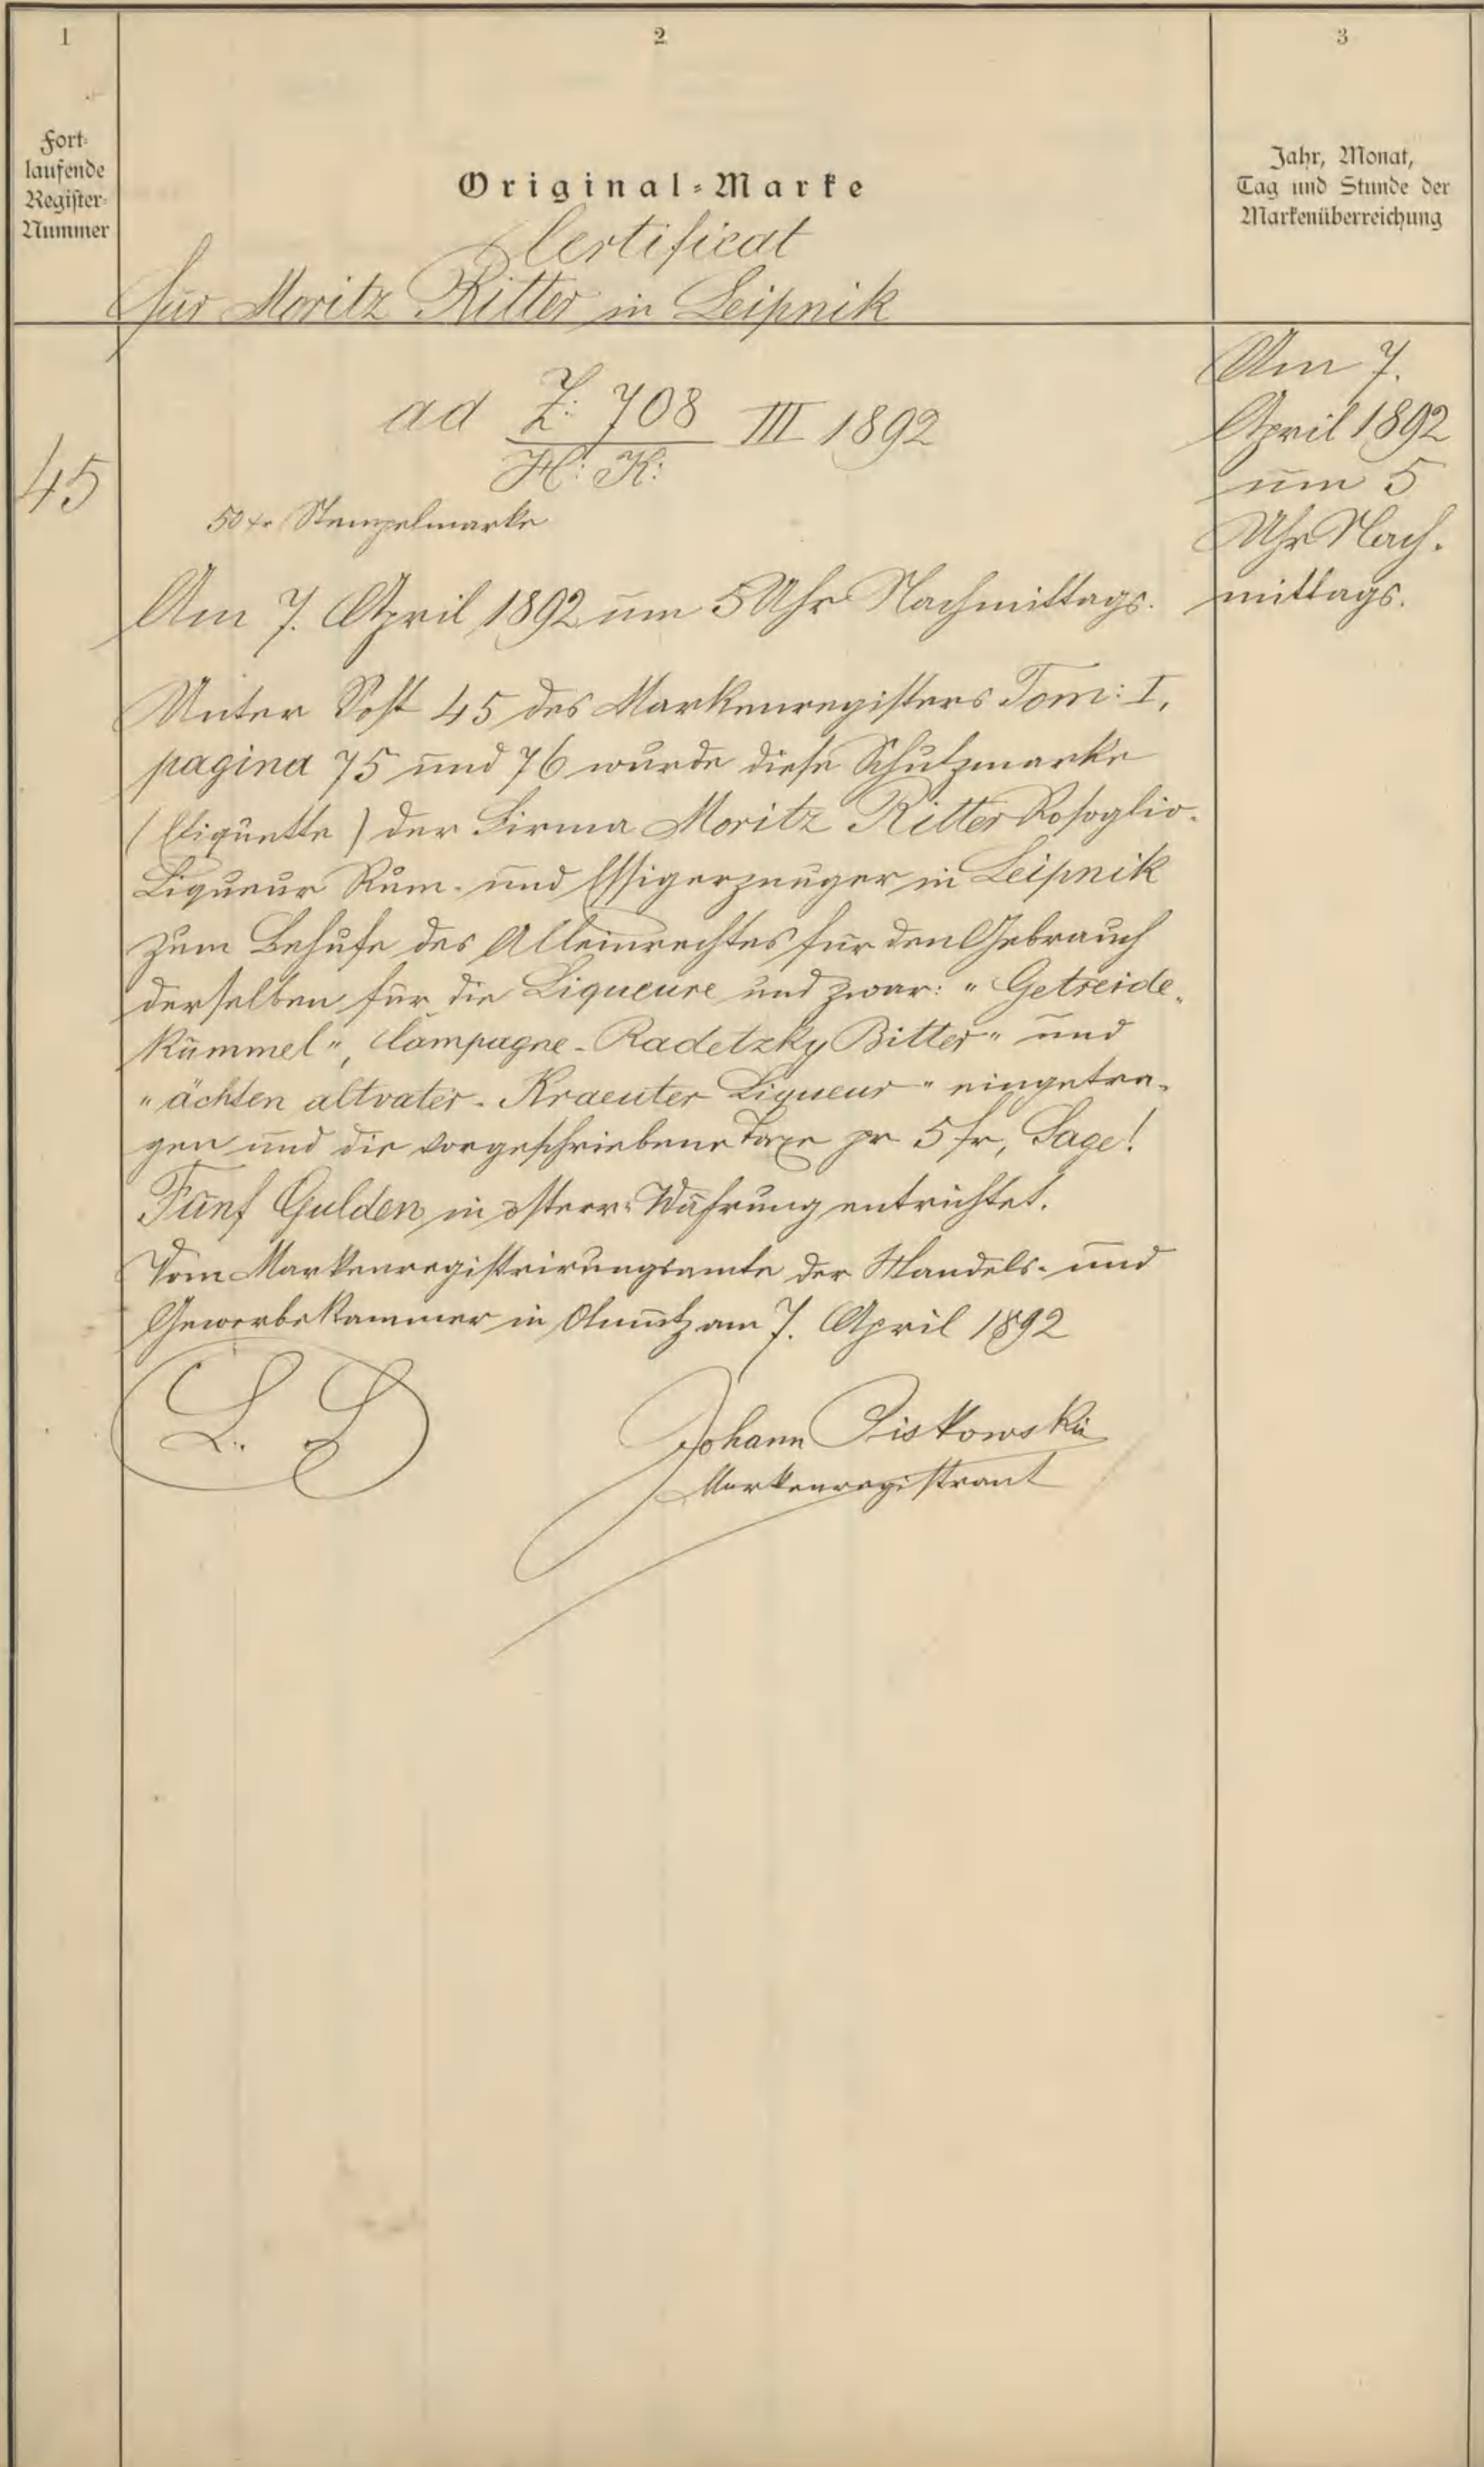 1
2
3
Fort-
laufende
Register-
Nummer
Original-Marke
Jahr, Monat,
Tag und Stunde der
Markenüberreichung
Certificat
für Moritz Ritter in Leipnik
45
ad Z: 708 III 1892
H: K:
50 xr Stempelmarke
Am 7. April 1892 um 5 Uhr Nachmittags.
Unter Post 45 des Markenregisters Tom: I,
pagina 75 und 76 wurde diese Schutzmarke
(Etiquette) der Firma Moritz Ritter Rosoglio-
Liqueur Rum- und Essigerzeuger in Leipnik
zum Behufe des Alleinrechtes für den Gebrauch
derselben für die Liqueure und zwar: "Getreide-
kümmel", Campagne-Radetzky Bitter" und
"ächten altvater-Kraeuter Liqueur" eingetra-
gen und die vorgeschriebene Taxe pr 5 fr, Sage!
Fünf Gulden in österr: Währung entrichtet.
Vom Markenregistrirungsamte der Handels- und
Gewerbekammer in Olmütz am 7. April 1892
L. S
Johann
Markenregistrant
Am 7.
April 1892
um 5
Uhr Nach-
mittags.